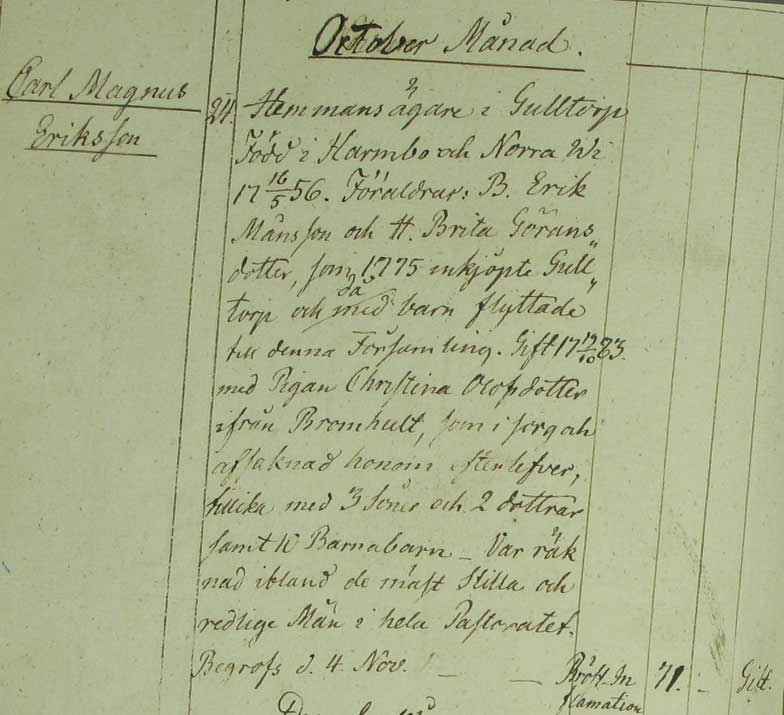 October Månad.
Carl Magnus
Eriksson
24. Hemmansägare i Gulltorp
Född i Harmbo och Norra Wi
17 16/5 56. Föräldrar: B. Erik
Månsson och H. Brita Görans„
dotter, som 1775 inköpte Gull„
torp och då med barn flyttade
till denna Församling. Gift 17 12/10 83.
med Pigan Christina Olofsdotter
ifrån Bromhult, som i sorg och
afsaknad honom efterlefver,
tillika med 3 Söner och 2 dottrar
samt 10 Barnabarn _ Var räk
nad ibland de mäst Stilla och
redlige Män i hela Pastoratet.
Begrofs d. 4. Nov. _ _ Bröst-In
flamation 71. _ Gift.